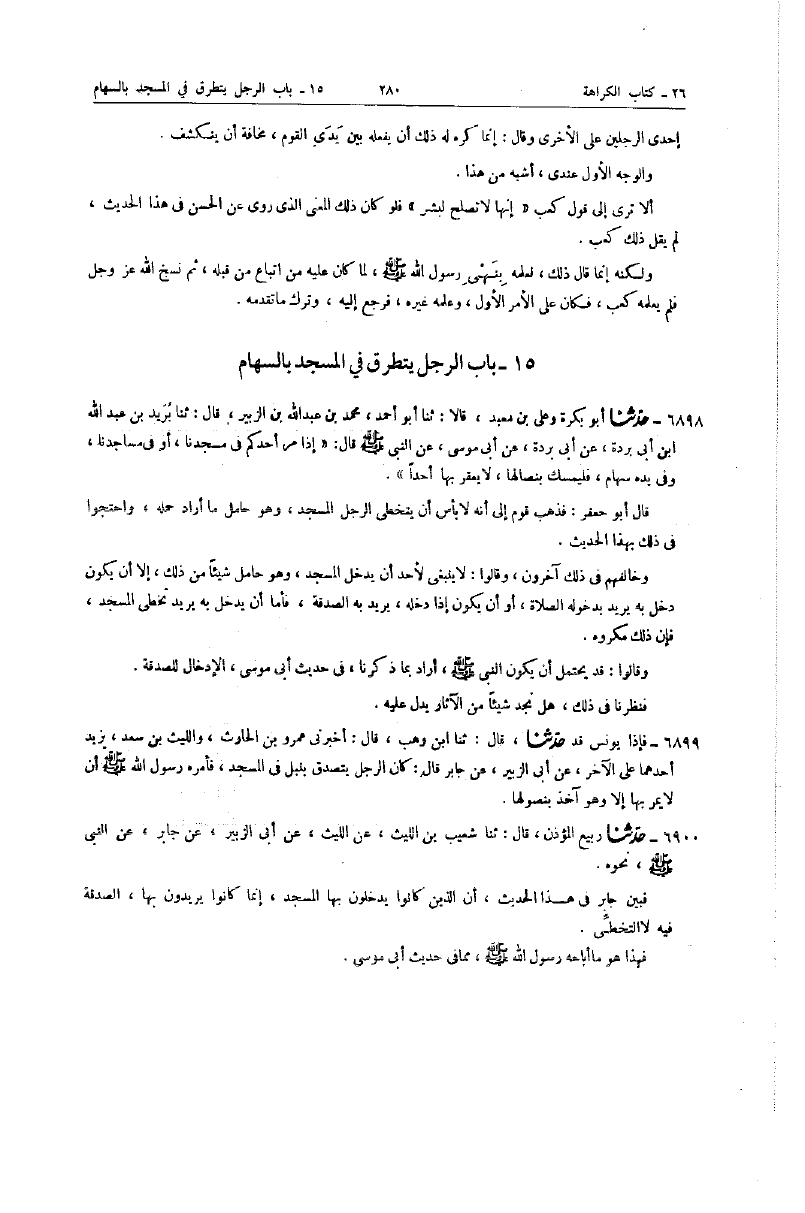 ٢٦ ـ كتاب الكراهة ٢٨٠ ١٥ ـ باب الرجل يتطرق في المسجد بالسهام
إحدى الرجلين على الأخرى وقال : إنما كره له ذلك أن يفعله بين يَدَيِ القوم ، مخافة أن ينكشف .
والوجه الأول عندى ، أشبه من هذا .
ألا ترى إلى قول كعب « إنها لا تصلح لبشر » فلو كان ذلك للمعنى الذى روى عن الحسن فى هذا الحديث ،
لم يقل ذلك كعب .
ولكنه إنما قال ذلك ، لعلمه بِنَهْىِ رسول الله ﷺ ، لما كان عليه من اتباع من قبله ، ثم نسخ الله عز وجل
فلم يعلمه كعب ، فكان على الأمر الأول ، وعلمه غيره ، فرجع إليه ، وترك ما تقدمه .
١٥ ـ باب الرجل يتطرق في المسجد بالسهام
٦٨٩٨ ـ حدثنا أبو بكرة وعلى بن معبد ، قالا : ثنا أبو أحمد ، محمد بن عبدالله بن الزبير ، قال : ثنا بُرَيد بن عبد الله
ابن أبى بردة ، عن أبى بردة ، عن أبى موسى ، عن النبى ﷺ قال: « إذا مر أحدكم فى مسجدنا ، أو فى مساجدنا ،
وفى يده سهام ، فليمسك بنصالها ، لا يعقر بها أحداً » .
قال أبو جعفر : فذهب قوم إلى أنه لا بأس أن يتخطى الرجل المسجد ، وهو حامل ما أراد حمله ، واحتجوا
فى ذلك بهذا الحديث .
وخالفهم فى ذلك آخرون ، وقالوا : لا ينبغى لأحد أن يدخل المسجد ، وهو حامل شيئاً من ذلك ، إلا أن يكون
دخل به يريد بدخوله الصلاة ، أو أن يكون إذا دخله ، يريد به الصدقة ، فأما أن يدخل به يريد تخطى المسجد ،
فإن ذلك مكروه .
وقالوا : قد يحتمل أن يكون النبى ﷺ ، أراد بما ذكرنا ، فى حديث أبى موسى ، الإدخال للصدقة .
فنظرنا فى ذلك ، هل نجد شيئاً من الآثار يدل عليه .
٦٨٩٩ ـ فإذا يونس قد حدثنا ، قال : ثنا ابن وهب ، قال : أخبرنى عمرو بن الحارث ، والليث بن سعد ، يزيد
أحدهما على الآخر ، عن أبى الزبير ، عن جابر قال : كان الرجل يتصدق بنبل فى المسجد ، فأمره رسول الله ﷺ أن
لا يمر بها إلا وهو آخذ بنصولها .
٦٩٠٠ ـ حدثنا ربيع المؤذن ، قال : ثنا شعيب بن الليث ، عن الليث ، عن أبى الزبير ، عن جابر ، عن النبى
ﷺ ، نحوه .
فبين جابر فى هذا الحديث ، أن الذين كانوا يدخلون بها المسجد ، إنما كانوا يريدون بها ، الصدقة
فيه لا التخطىِّ .
فهذا هو ما أباحه رسول الله ﷺ ، مما فى حديث أبى موسى .